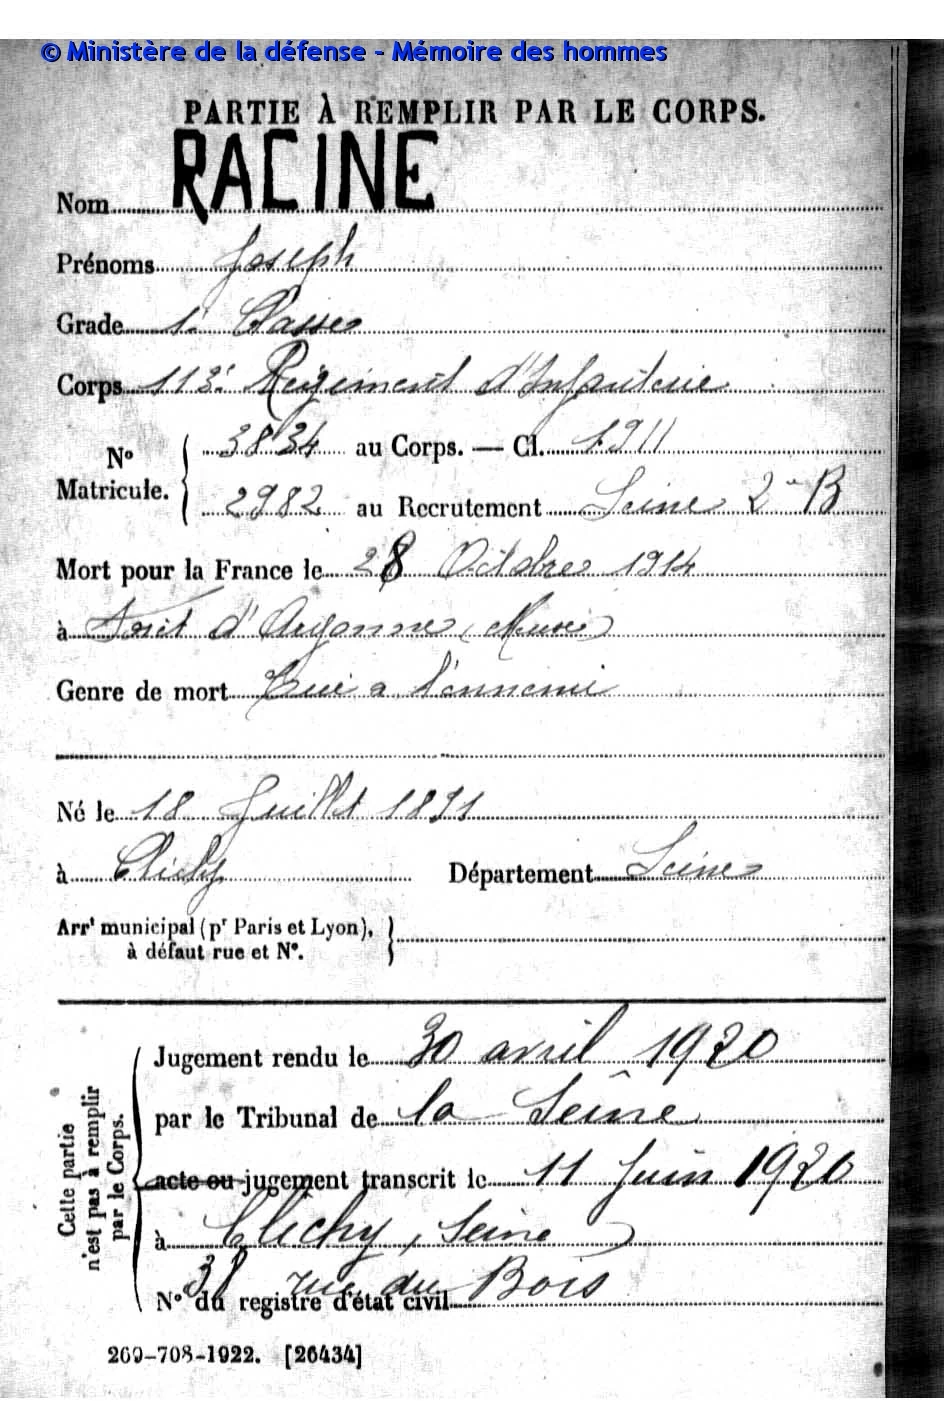 © Ministère de la défense - Mémoire des hommes
PARTIE À REMPLIR PAR LE CORPS.
Nom RACINE
Prénoms Joseph
Grade 1e Classe
Corps 113e Régiment d'Infanterie
N° Matricule. 3834 au Corps. — Cl. 1911
2982 au Recrutement Seine 2e B
Mort pour la France le 28 Octobre 1914
à Forêt d'Argonne (Meuse)
Genre de mort Tué à l'ennemi
Né le 18 Juillet 1891
à Clichy Département Seine
Arrt municipal (pr Paris et Lyon),
à défaut rue et N°.
Cette partie
n'est pas à remplir
par le Corps.
Jugement rendu le 30 avril 1920
par le Tribunal de la Seine
acte ou jugement transcrit le 11 Juin 1920
à Clichy, Seine
38 rue du Bois
N° du registre d'état civil
269-708-1922. [26434]